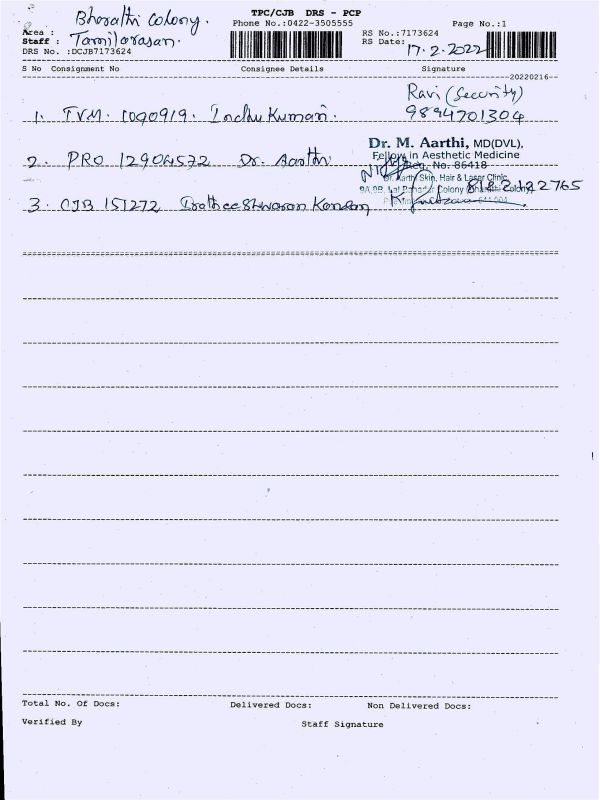 TPC/CJB DRS - PCP
Phone No.:0422-3505555 Page No.:1
Area : Bharathi Colony.
Staff : Tamilarasan.
DRS No. :DCJB7173624
RS No.:7173624
RS Date: 17.2.2022
S No Consignment No Consignee Details Signature
20220216
1. TVM. 1090919. Indhu Kumari. Ravi (Security)
9894701304
Dr. M. Aarthi, MD(DVL),
Fellow in Aesthetic Medicine
Reg. No. 86418
2. PRO 12904572 Dr. Aarthi
Dr. Aarthi Skin, Hair & Laser Clinic
Colony (Bharathi Colony)
3. CJB 151272
Total No. Of Docs: Delivered Docs: Non Delivered Docs:
Verified By Staff Signature